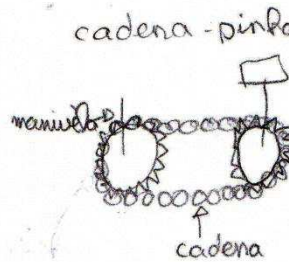 cadena -
manivela
cadena